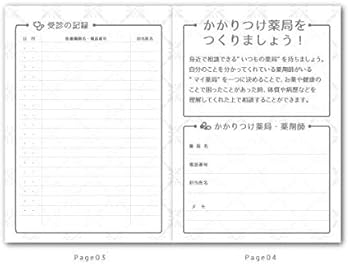 受診の記録
日 付
医療機関名・電話番号
担当医名
かかりつけ薬局を
つくりましょう！
身近で相談できる"いつもの薬局"を持ちましょう。
自分のことを分かってくれている薬剤師がいる
"マイ薬局"を一つに決めることで、お薬や健康の
ことで困ったことがあった時、体質や病歴などを
理解してくれた上で相談することができます。
かかりつけ薬局・薬剤師
薬 局 名
電話番号
担当者名
メ モ
Page03
Page04